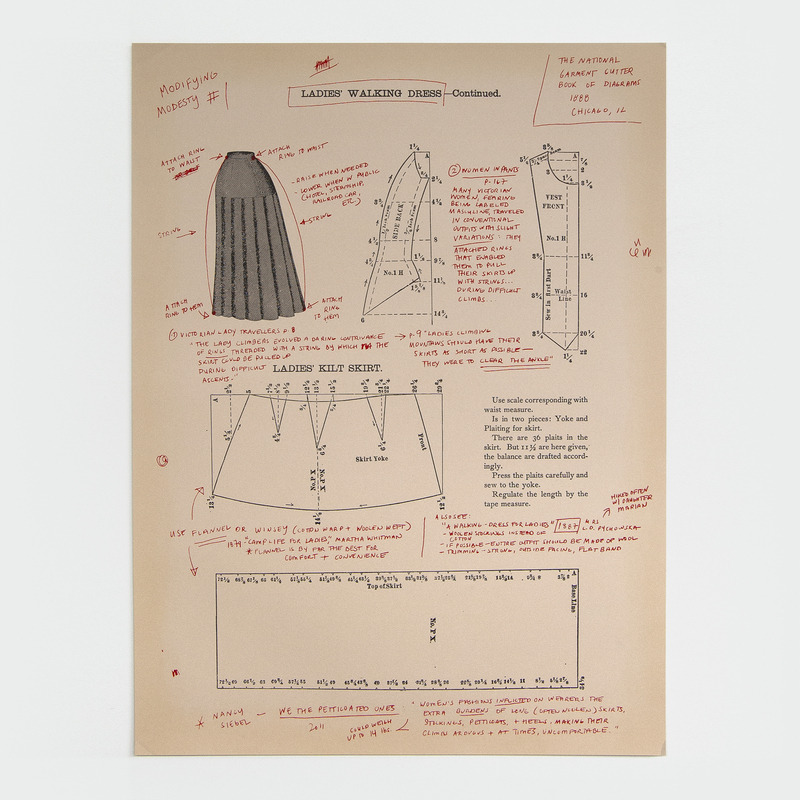 MODIFYING
MODESTY #1
LADIES' WALKING DRESS—Continued.
THE NATIONAL
GARMENT CUTTER
BOOK OF DIAGRAMS
1888
CHICAGO, IL
ATTACH RING
TO WAIST
ATTACH
RING TO WAIST
- RAISE WHEN NEEDED
- LOWER WHEN IN PUBLIC
(HOTEL, STEAMSHIP,
RAILROAD CAR,
ETC.)
STRING
STRING
ATTACH
RING
TO HEM
ATTACH
RING
TO HEM
SIDE BACK
No.1 H
② WOMEN IN PANTS
P. 167
MANY VICTORIAN
WOMEN, FEARING
BEING LABELED
MASCULINE, TRAVELED
IN CONVENTIONAL
OUTFITS WITH SLIGHT
VARIATIONS: THEY
ATTACHED RINGS
THAT ENABLED
THEM TO PULL
THEIR SKIRTS UP
WITH STRINGS...
DURING DIFFICULT
CLIMBS...
VEST
FRONT
No.1 H
Sew in First Dart
Waist
Line
① VICTORIAN LADY TRAVELLERS P. 8
"THE LADY CLIMBERS EVOLVED A DARING CONTRIVANCE
OF RINGS THREADED WITH A STRING BY WHICH THE
SKIRT COULD BE PULLED UP
DURING DIFFICULT
ASCENTS."
P. 9 "LADIES CLIMBING
MOUNTAINS SHOULD HAVE THEIR
SKIRTS AS SHORT AS POSSIBLE—
THEY WERE TO CLEAR THE ANKLE"
LADIES' KILT SKIRT.
A
Skirt Yoke
Front
No. P X
No. P X
Use scale corresponding with
waist measure.
Is in two pieces: Yoke and
Plaiting for skirt.
There are 36 plaits in the
skirt. But 11½ are here given,
the balance are drafted accord-
ingly.
Press the plaits carefully and
sew to the yoke.
Regulate the length by the
tape measure.
HIKED OFTEN
W/ DAUGHTER
MARIAN
USE FLANNEL OR WINSEY (COTTON WARP + WOOLEN WEFT)
1879 - "CAMP LIFE FOR LADIES," MARTHA WHITMAN
* FLANNEL IS BY FAR THE BEST FOR
COMFORT + CONVENIENCE
ALSO SEE:
"A WALKING-DRESS FOR LADIES" 1887 MRS
L.D. PYCHOWSKA
- WOOLEN STOCKINGS INSTEAD OF
COTTON
- IF POSSIBLE - ENTIRE OUTFIT SHOULD BE MADE OF WOOL
- TRIMMING - STRONG, OUTSIDE FACING, FLAT BAND
Top of Skirt
A
Base Line
No. P X
* NANCY
SIEGEL — WE THE PETTICOATED ONES
2011
COULD WEIGH
UP TO 14 lbs.
"WOMEN'S FASHIONS INFLICTED ON WEARERS THE
EXTRA BURDENS OF LONG (OFTEN WOOLEN) SKIRTS,
STOCKINGS, PETTICOATS, + HEELS, MAKING THEIR
CLIMB ARDUOUS + AT TIMES, UNCOMFORTABLE."